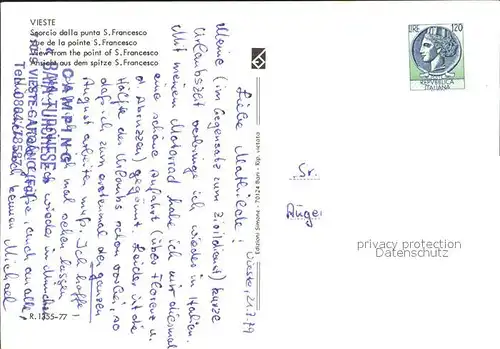 VIESTE
Scorcio dalla punta S.Francesco
Vue de la pointe S.Francesco
View from the point of S.Francesco
Ansicht aus dem spitze S.Francesco
LIRE 120
REPVBBLICA
ITALIANA
Vieste, 21.7.79
Liebe Mathilde!
Meine (im Gegensatz zum Zivildienst) kurze
Urlaubszeit verbringe ich wieder in Italien.
Mit meinem Motorrad habe ich mir diesmal
eine schöne Anfahrt (über Florenz u.
d. Abruzzen) gegönnt. Leider ist die
Hälfte des Urlaubs schon vorbei, so
daß ich zum erstenmal den ganzen
August arbeiten muß. Ich hoffe,
ich mal sehen lassen
wieder in München
Grüße, auch an alle,
Michael
CAMPING
« BAIA TURCHESE »
VIESTE GARGANICO (FG)
Tel.
Sr.
Angel
privacy protection
Datenschutz
R.1355-77